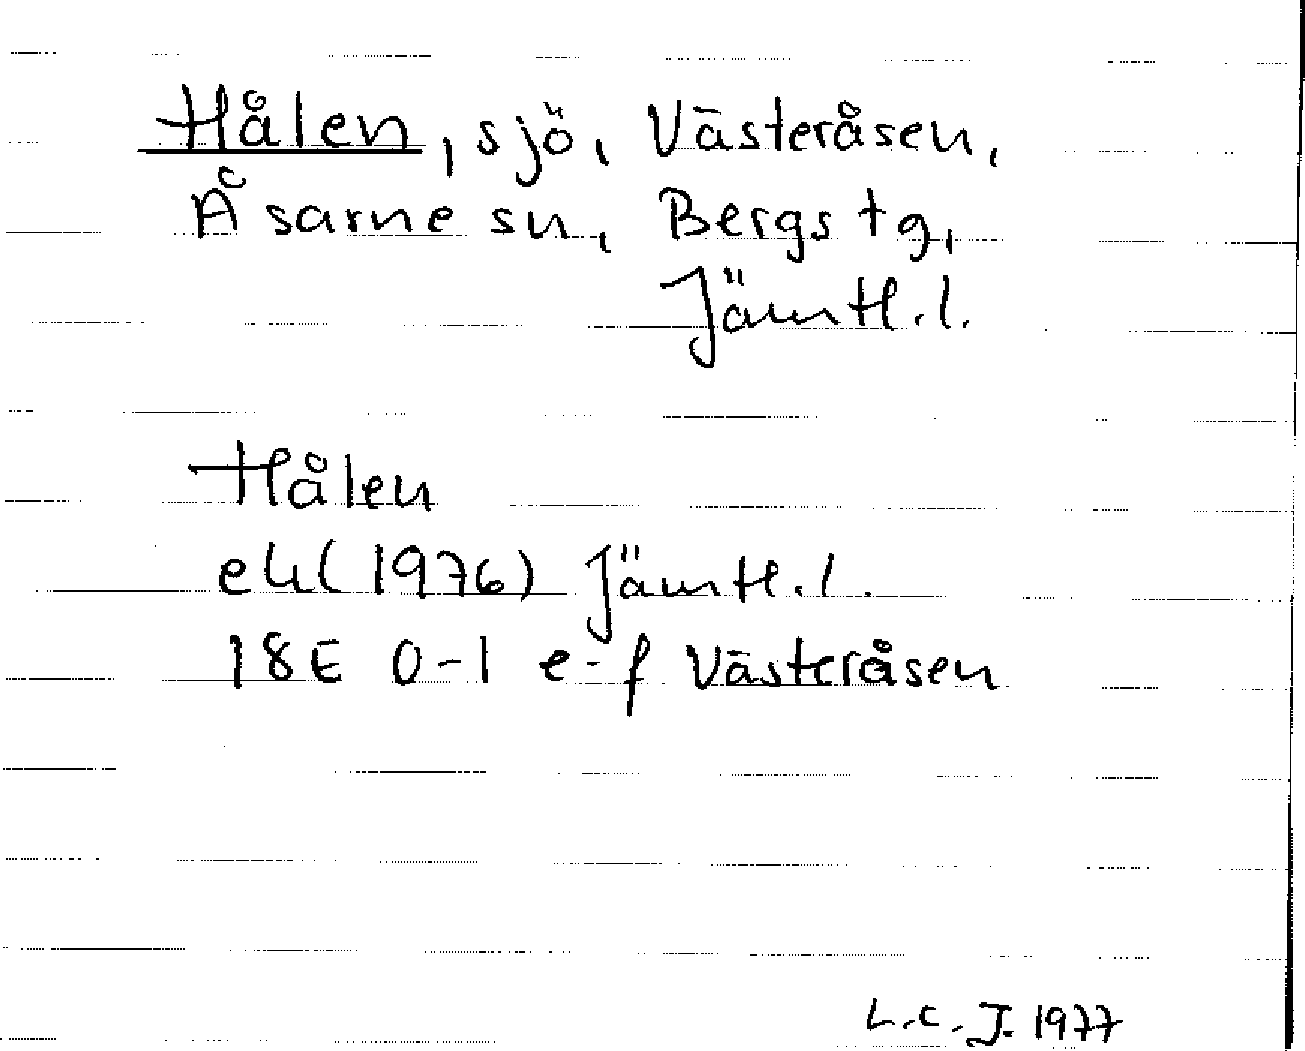 Hålen, sjö, Västeråsen,
Åsarne sn, Bergs tg,
Jämtl. l.
Hålen
ek (1976) Jämtl. l.
18E 0-1 e-f Västeråsen
L.C.J. 1977